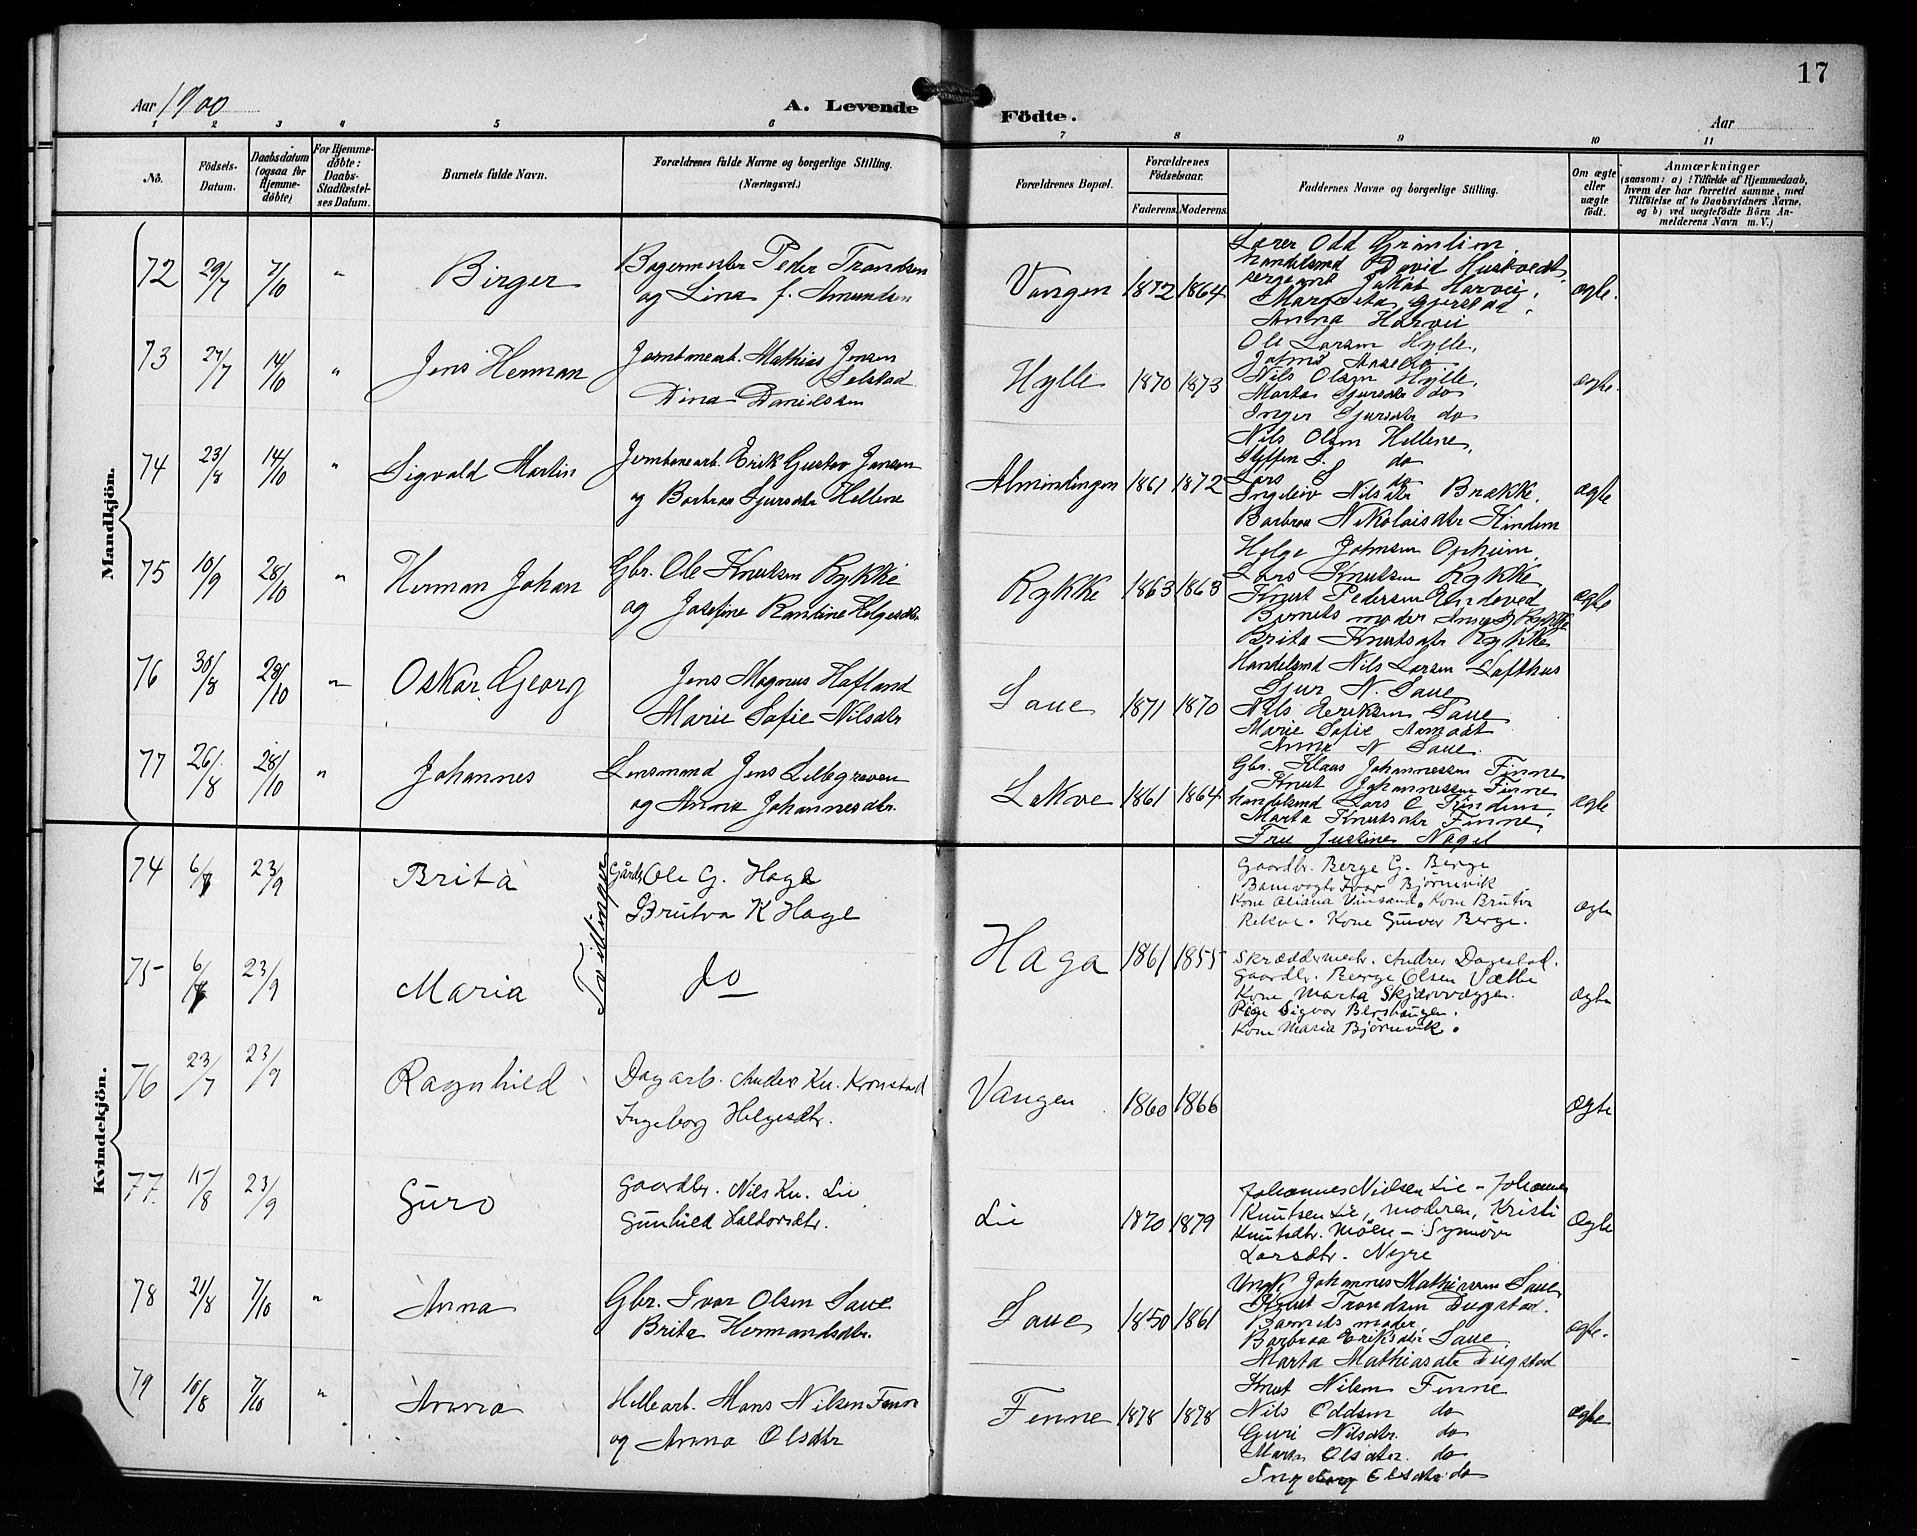 17
Aar 1900
A. Levende Födte.
Aar
1 2 3 4 5 6 7 8 9 10 11
No.
Födsels-Datum.
Daabsdatum (ogsaa for Hjemmedøbte)
For Hjemmedøbte: Daabs-Stadfæstelses Datum.
Barnets fulde Navn.
Forældrenes fulde Navne og borgerlige Stilling. (Næringsvei.)
Forældrenes Bopæl.
Forældrenes Födselsaar.
Faderens. Moderens.
Faddernes Navne og borgerlige Stilling.
Om ægte eller uægte født.
Anmærkninger
(saasom: a) i Tilfælde af Hjemmedaab, hvem der har forrettet samme, med Tilføielse af to Daabsvidners Navne. og b) ved uægtefödte Börn Anmelderens Navn m. V.)
Mandkjön.
72 29/7 7/10 " Birger
Bagermester Peder Trondsen
og Lina f. Amundsen
Vangen 1872 1864
Lærer Odd Grimlien
handelsmd David Huskvedt
sergeant Jakob Harvei
Margreta Gjerstad
Anna Harvei
ægte.
73 27/7 14/10 " Jens Herman
Jernbanearb. Mathias Jensen
Selstad
Dina Danielsen
Hylle 1870 1873
Ole Larsen Hylle,
Nils Olsen Hylle,
Marta Sjursdtr do
Inger Sjursdtr do
ægte.
74 23/8 14/10 " Sigvald Martin
Jernbanearb. Erik Gustav Jensen
og Barbraa Sjursdtr Hellene
Almindingen 1861 1872
Nils Olsen Hellene,
Steffen S. do
Lars S do
Ingeleiv Nilsdtr Brække.
Barbraa Nikolaisdtr Kindem
ægte
75 10/9 28/10 " Herman Johan
Gbr. Ole Knutsen Rykke
og Josefine Rantine Helgesdtr.
Rykke 1863 1863
Helge Johnsen Opheim,
Lars Knutsen Rykke
Knut Pedersen Endeved
Barnets moder Rykke
Brita Knutsdtr Rykke
ægte
76 30/8 28/10 " Oskar Georg
Jens Magnus Hafland
Marie Sofie Nilsdtr
Saue 1871 1870
Handelsmd Nils Larsen Lofthus
Sjur N. Saue
Nils Eriksen Saue
Marie Sofie
Anna N Saue.
77 26/8 28/10 " Johannes
Lensmand Jens Lillegraven
og Anna Johannesdtr.
Lekve 1861 1864
Gbr. Klaas Johannessen Finne
Knut Johannessen Finne
handelsmd Lars E Kindem
Marta Knutsdtr Finne,
Fru Justine Nagel
ægte
Kvindekjön.
Tvillinger
74 6/8 23/9 Brita
Gårdb. Ole G. Haga
Brutva K Haga
Haga 1861 1855
Gaardbr. Berge G. Berge
Banevogter Ivar Björnevik
Kone Oliana Vinsand. Kone Brutva
Rekve. Kone Gunvor Berge.
ægte
75 6/8 23/9 Maria
do
Skræddermestr. Anders Dagestad.
Gaardbr. Berge Olsen Vætte
Kone Marta Skjærvvæggen.
Pige Sigvor Bershaugen.
Kone Maria Björnevik.
ægte
76 23/7 23/9 Ragnhild
Dagarb. Anders Kn. Kronstad
Ingeborg Helgesdtr.
Vangen 1860 1866
ægte
77. 15/8 23/9 Guro
Gaardbr. Nils Kn. Lie
Gunhild Haldorsdtr.
Lie 1870 1879
Johannes Nielsen Lie - Johannes
Knutsen Lie, moderen, Kristi
Knutsdtr. Möen - Synnöve
Larsdtr. Nyre
Ægte
78 21/8 7/10 " Anna
Gbr. Ivar Olsen Saue
Brita Hermandsdtr.
Saue 1850 1861
Ungk. Johannes Mathiassen Saue,
Knut Trondsen Dugstad.
Barnets moder,
Barbraa Eriksdtr Saue,
Marta Mathiasdtr Dugstad
ægte.
79 10/8 7/10 " Anna
Hellearb. Mons Nilsen Finne
og Anna Olsdtr
Finne 1878 1878
Knut Nilsen Finne
Nils Oddsen do
Guri Nilsdtr. do
Marta Olsdtr. do
Ingeborg Olsdtr do
ægte